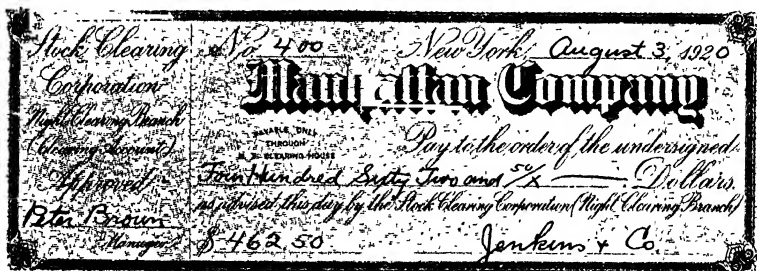 Stock Clearing
Corporation
Night Clearing Branch
(Clearing Account)
Approved
Peter Brown
Manager
No. 400 New York, August 3, 1920
Manhattan Company
PAYABLE ONLY
THROUGH
N. Y. CLEARING HOUSE
Pay to the order of the undersigned
Four Hundred Sixty Two and 50/x Dollars.
as advised this day by the Stock Clearing Corporation (Night Clearing Branch)
$ 462 50
Jenkins & Co.